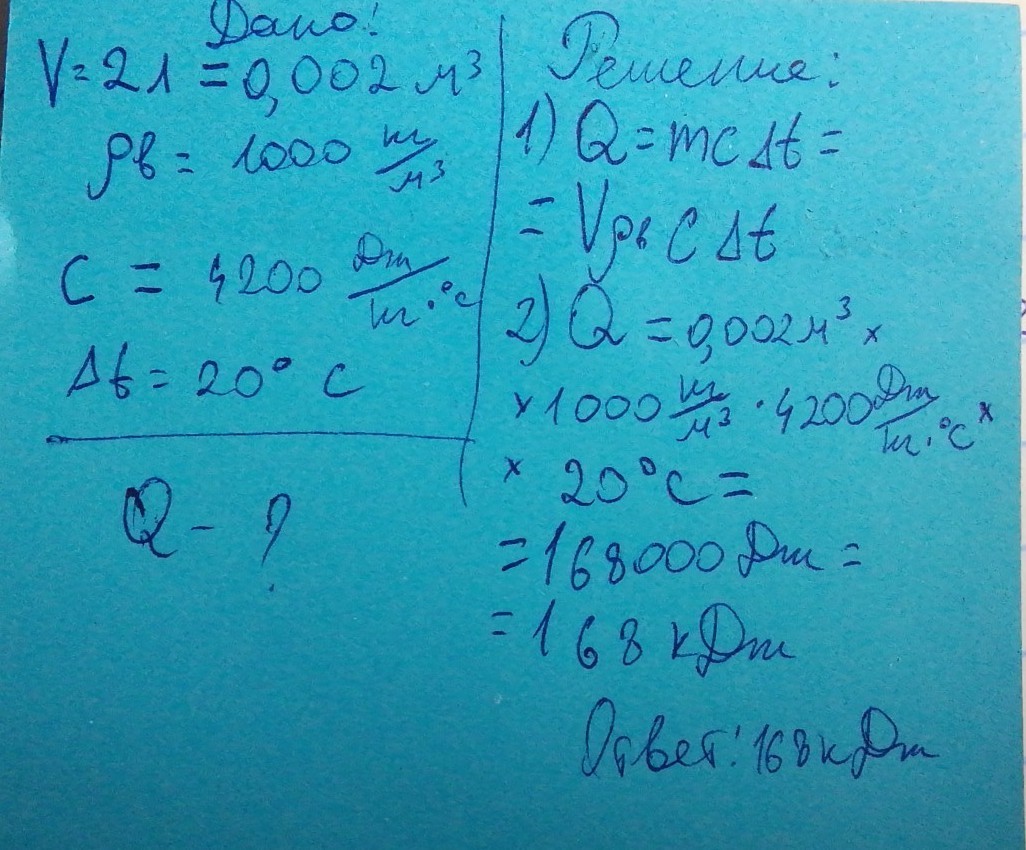 Дано:
V = 2л = 0,002 м³
ρв = 1000 кг/м³
C = 4200 Дж/кг·°C
Δt = 20° C
Q - ?
Решение:
1) Q = mcΔt =
= Vρв C Δt
2) Q = 0,002 м³ ×
× 1000 кг/м³ · 4200 Дж/кг·°C ×
× 20°C =
= 168000 Дж =
= 168 кДж
Ответ: 168 кДж